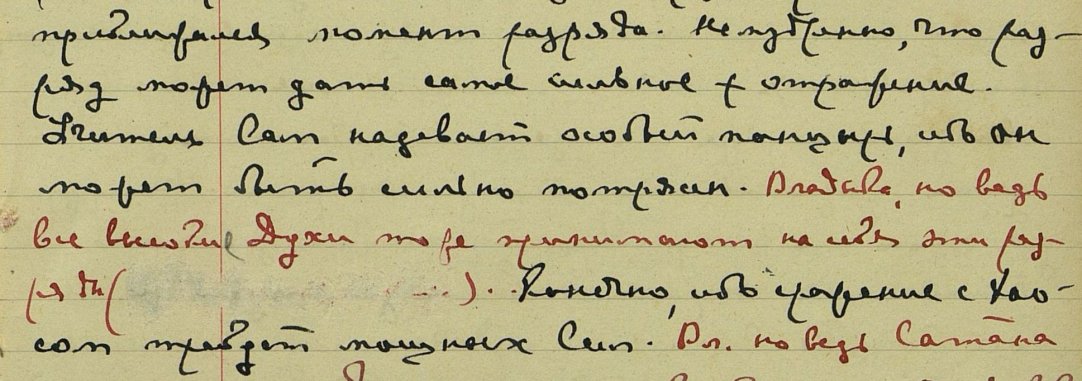 приближался момент разряда. Немудрено, что раз-
ряд может дать самое сильное отражение.
Учитель Сам надевает особый панцырь, ибо он
может быть сильно потрясен. Владыка, но ведь
все высшие Духи тоже принимают на себя эти раз-
ряды(...). Конечно, ибо сражение с Хао-
сом требует мощных Сил. Вл. но ведь Сатана